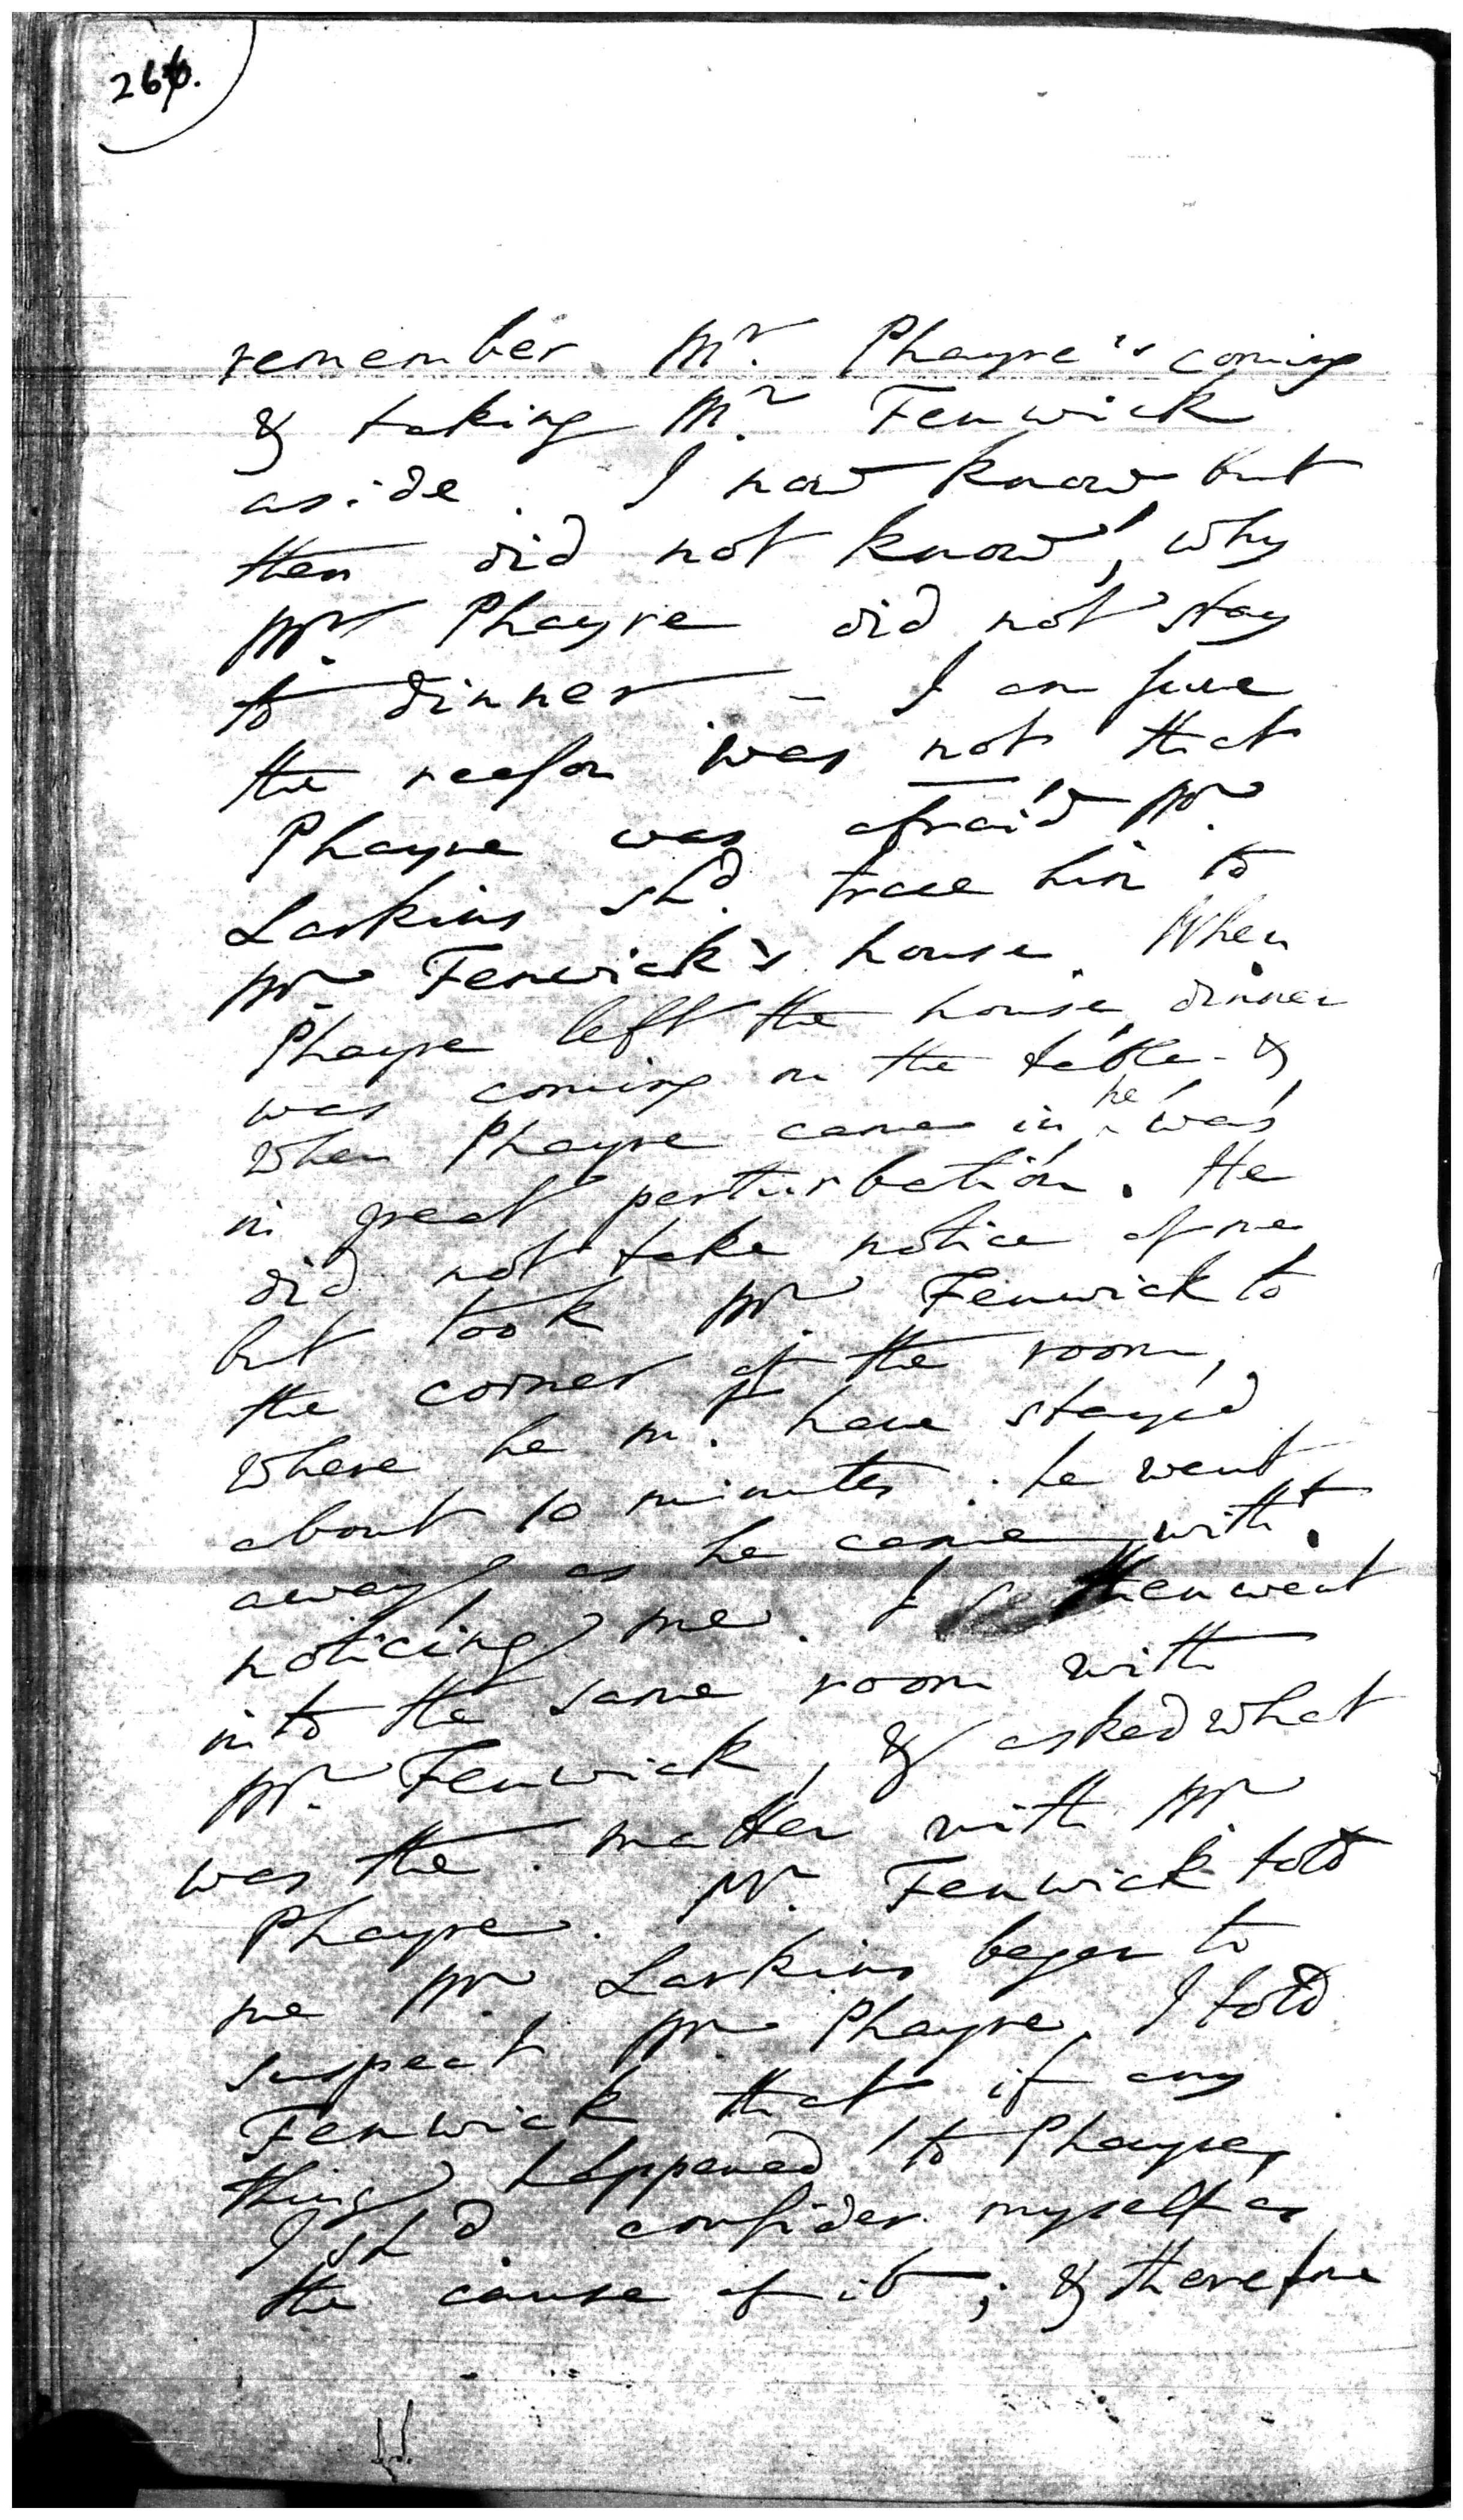 266.
remember Mr. Phayre's coming
& taking Mr. Fenwick
aside. I now know but
then did not know, why
Mr. Phayre did not stay
to dinner - I am sure
the reason was not that
Phayre was afraid Mr.
Larkins shd. trace him to
Mr. Fenwick's house. When
Phayre left the house, dinner
was coming on the table - &
when Phayre came in, he was
in great perturbation. He
did not take notice of me
but took Mr. Fenwick to
the corner of the room,
where he mt. have stayed
about 10 minutes. he went
away, as he came, witht.
noticing me. I then went
into the same room with
Mr. Fenwick, & asked what
was the matter with Mr.
Phayre. Mr. Fenwick told
me Mr. Larkins began to
suspect Mr. Phayre. I told
Fenwick that if any
thing happened to Phayre,
I shd. consider myself as
the cause of it; & therefore